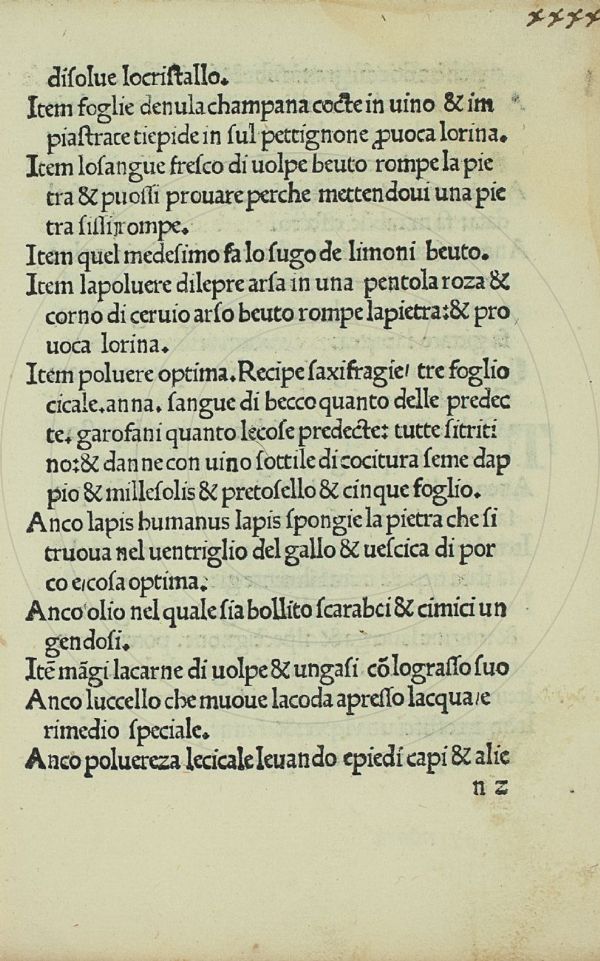 xxxx
diſolue locriſtallo.
Item foglie denula champana cocte in uino & im
piaſtrate tiepide in ſul pettignone ꝓuoca lorina.
Item loſangue freſco di uolpe beuto rompe la pie
tra & puoſſi prouare perche mettendoui una pie
tra ſiſſirompe.
Item quel medeſimo fa lo ſugo de limoni beuto.
Item lapoluere dilepre arſa in una pentola roza &
corno di ceruio arſo beuto rompe lapietra:& pro
uoca lorina.
Item poluere optima.Recipe ſaxifragie/ tre foglio
cicale.anna. ſangue di becco quanto delle predec
te. garofani quanto lecoſe predecte: tutte ſitriti
no:& danne con uino ſottile di cocitura ſeme dap
pio & milleſolis & pretoſello & cinque foglio.
Anco lapis humanus lapis ſpongie la pietra che ſi
truoua nel uentriglio del gallo & ueſcica di por
co e/coſa optima.
Anco olio nel quale ſia bollito ſcarabei & cimici un
gendoſi.
Itē mãgi lacarne di uolpe & ungaſi cõ lograſſo ſuo
Anco luccello che muoue lacoda apreſſo lacqua/e
rimedio ſpeciale.
Anco poluereza lecicale leuando epiedi capi & alie
n 2